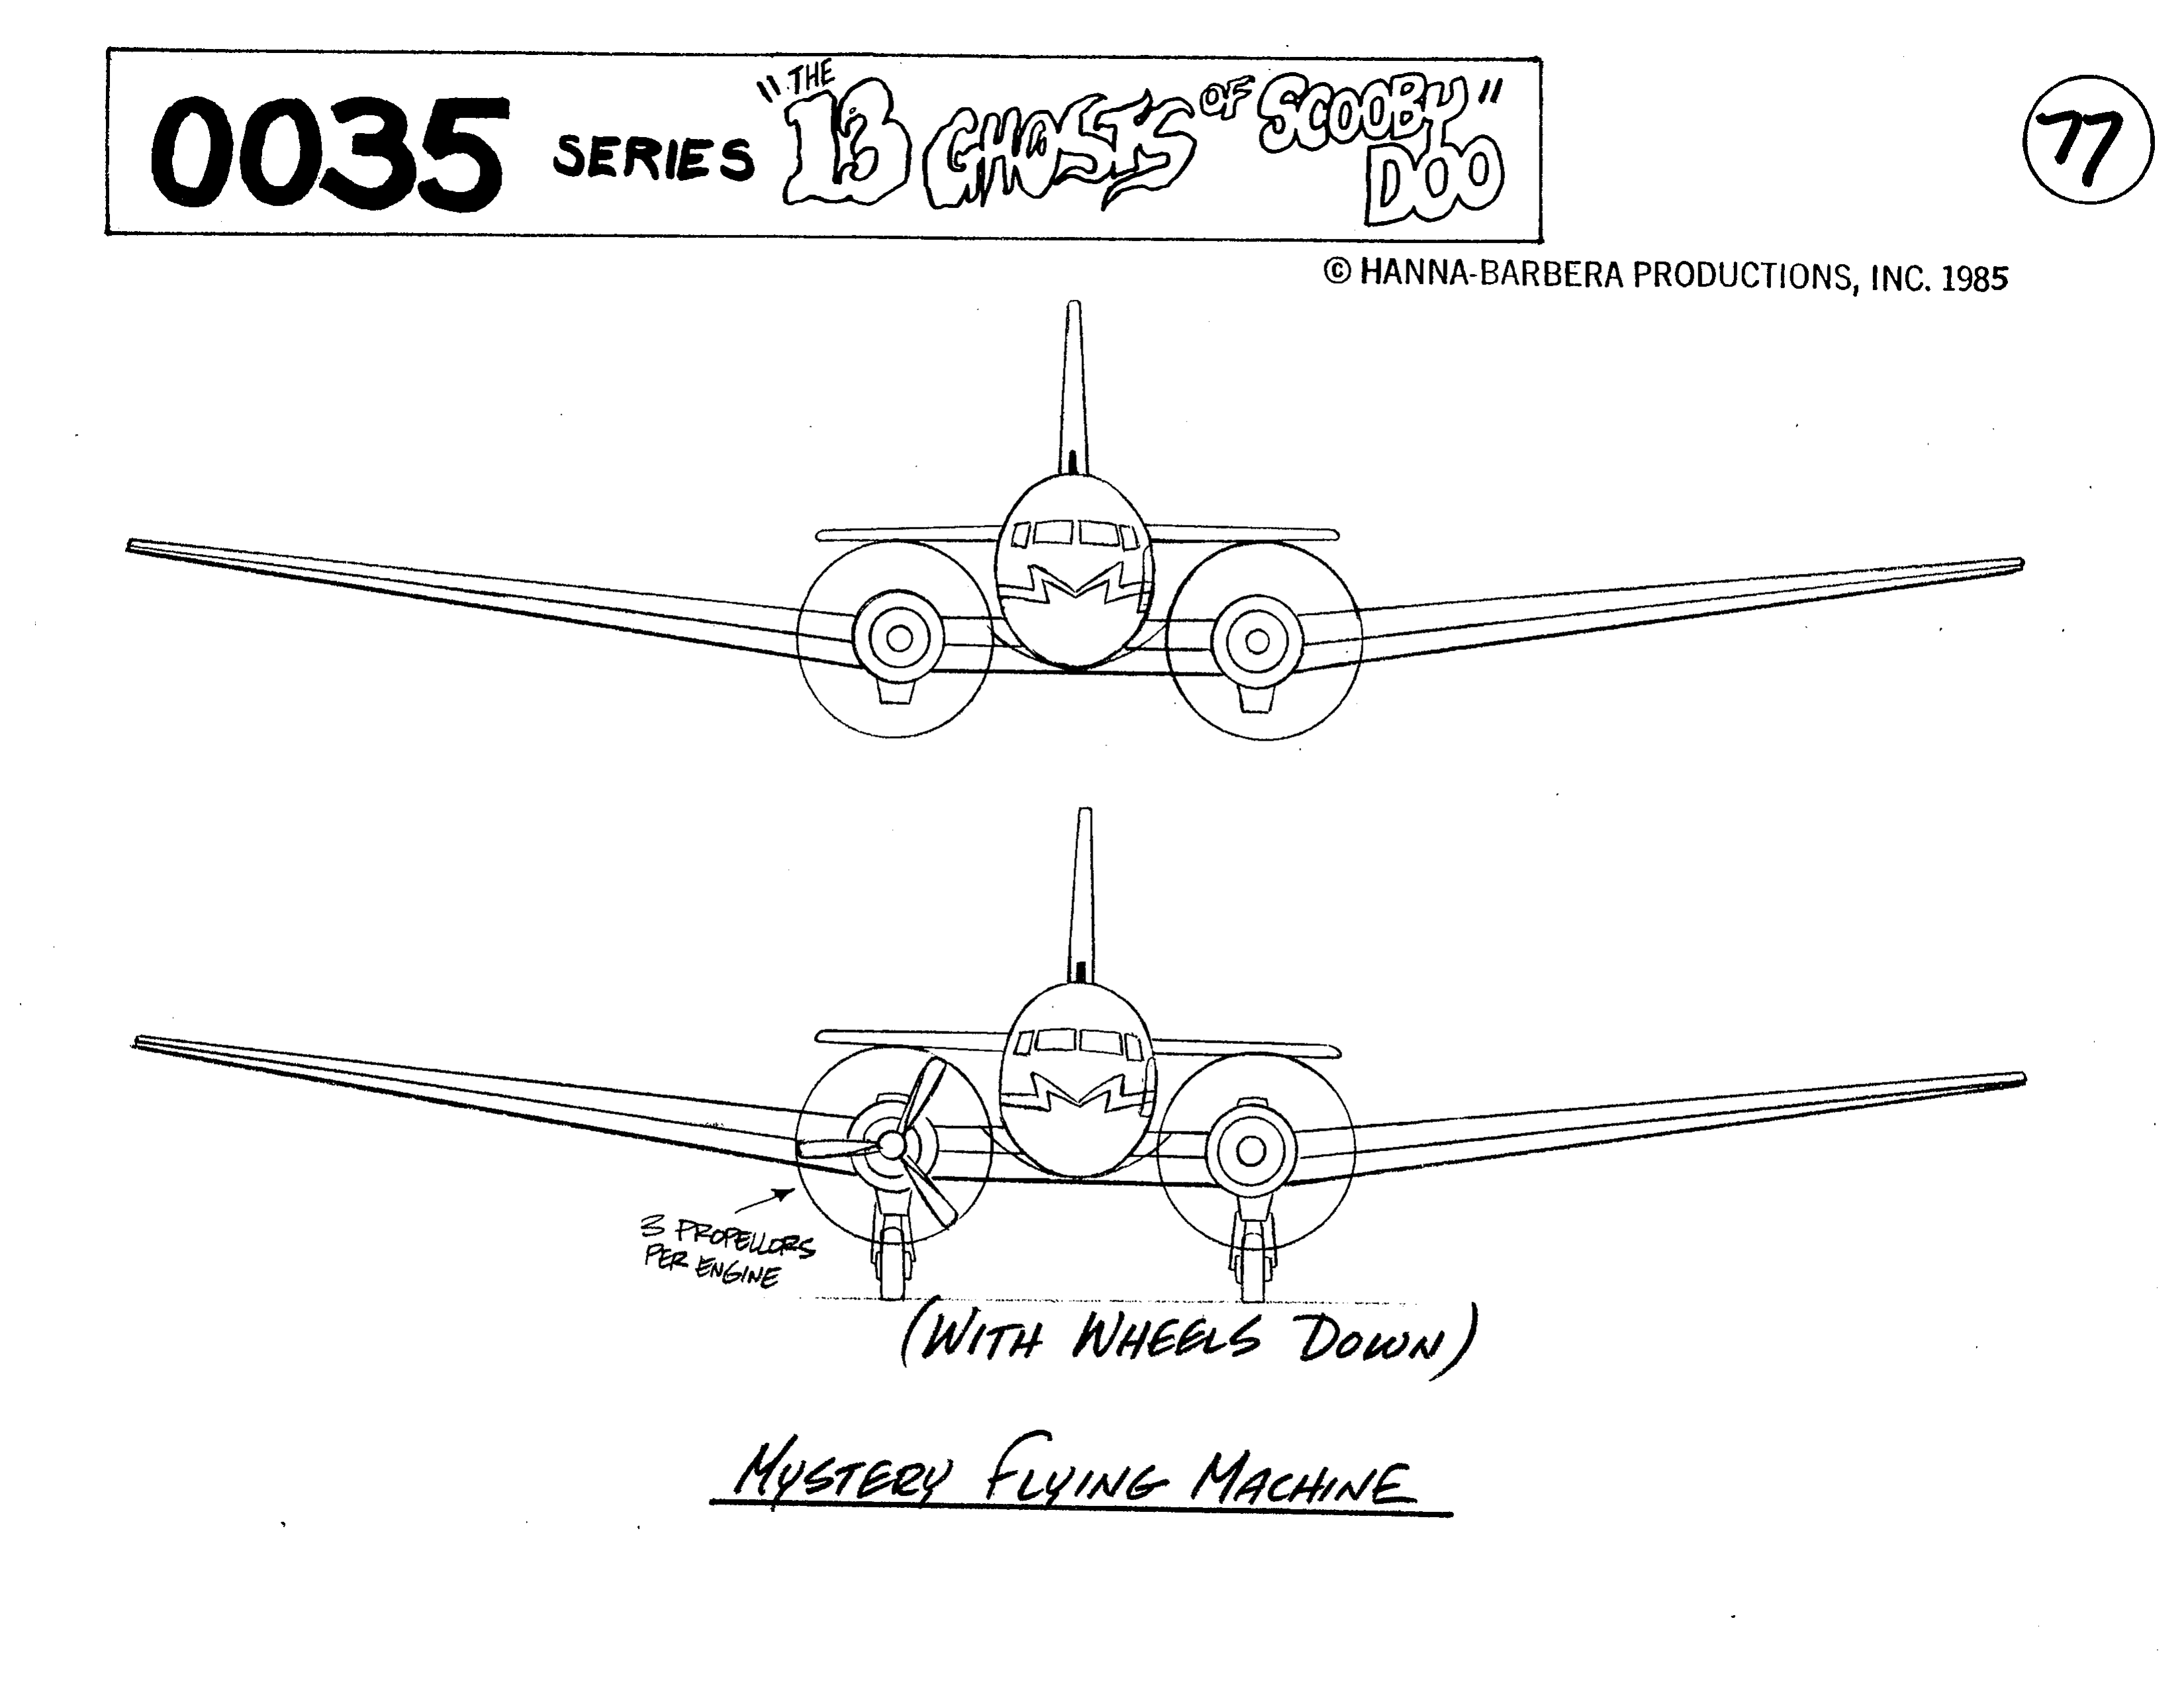 0035 SERIES "THE 13 GHOSTS OF SCOOBY DOO"
77
© HANNA-BARBERA PRODUCTIONS, INC. 1985
3 PROPELLORS
PER ENGINE
(WITH WHEELS DOWN)
MYSTERY FLYING MACHINE